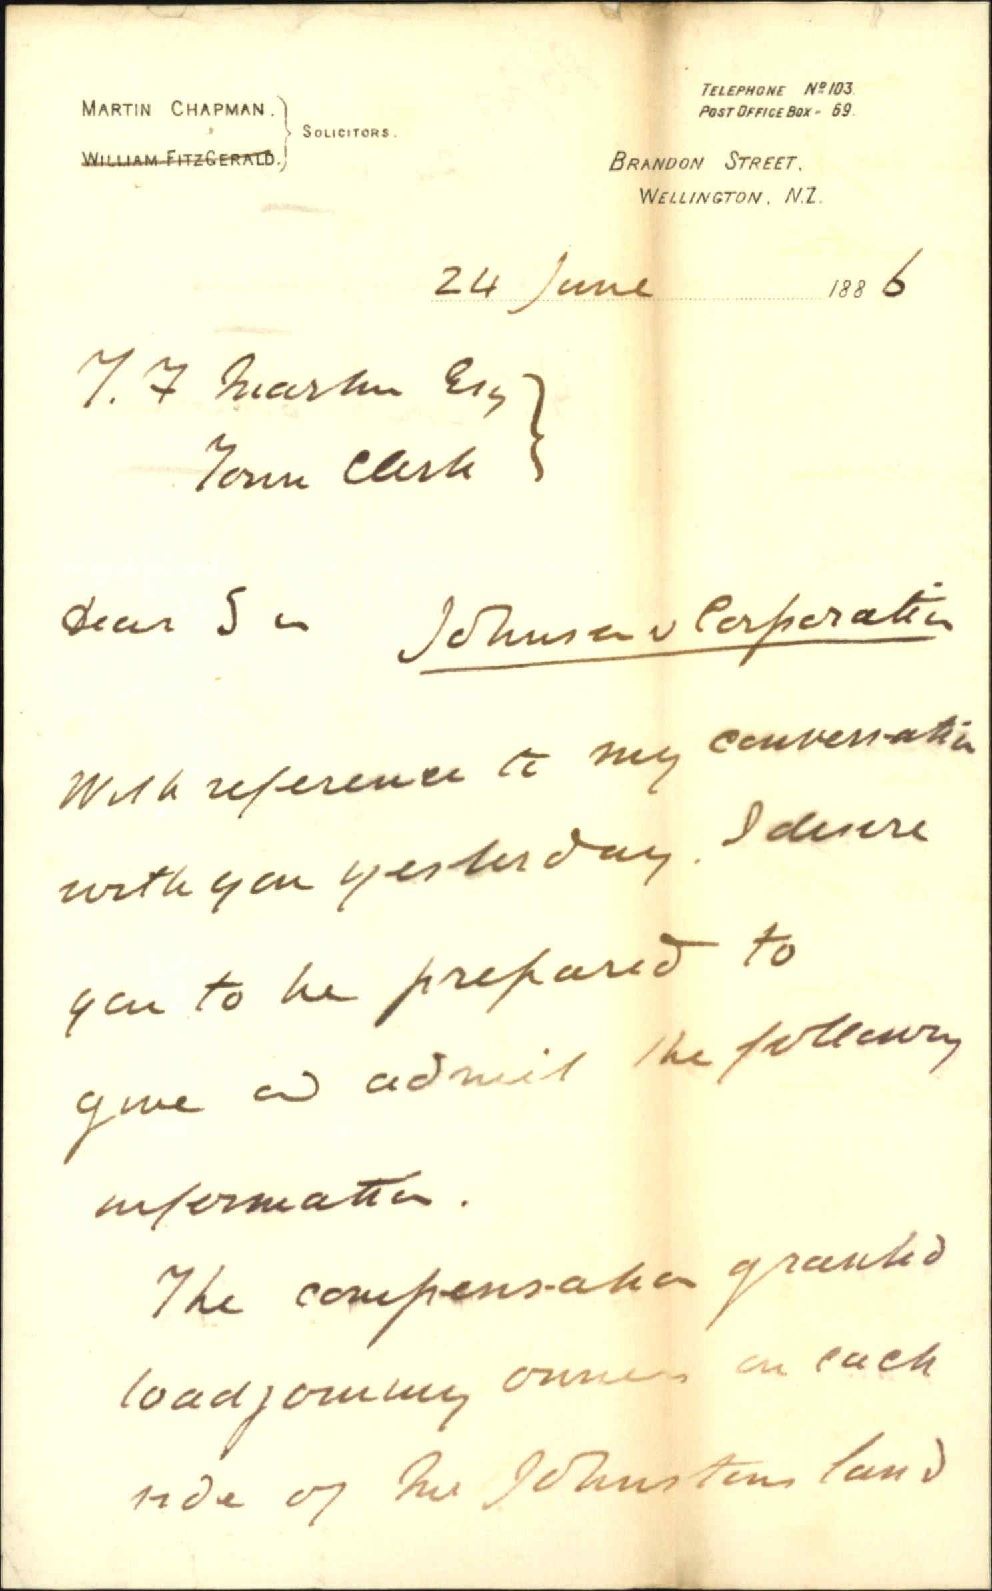 MARTIN CHAPMAN.
WILLIAM FITZGERALD.
SOLICITORS.
TELEPHONE Nº 103.
POST OFFICE BOX - 69.
BRANDON STREET,
WELLINGTON, N.Z.
24 June 1886
T. F Martin Esq
Town Clerk
Dear Sir Johnson v Corporation
With reference to my conversation
with you yesterday. I desire
you to be prepared to
give and admit the following
information.
The compensation granted
to adjoining owners on each
side of Mr Johnstons land